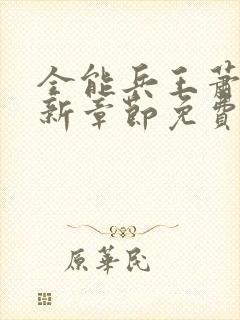 全能兵王蕭
新章節免費
原華民